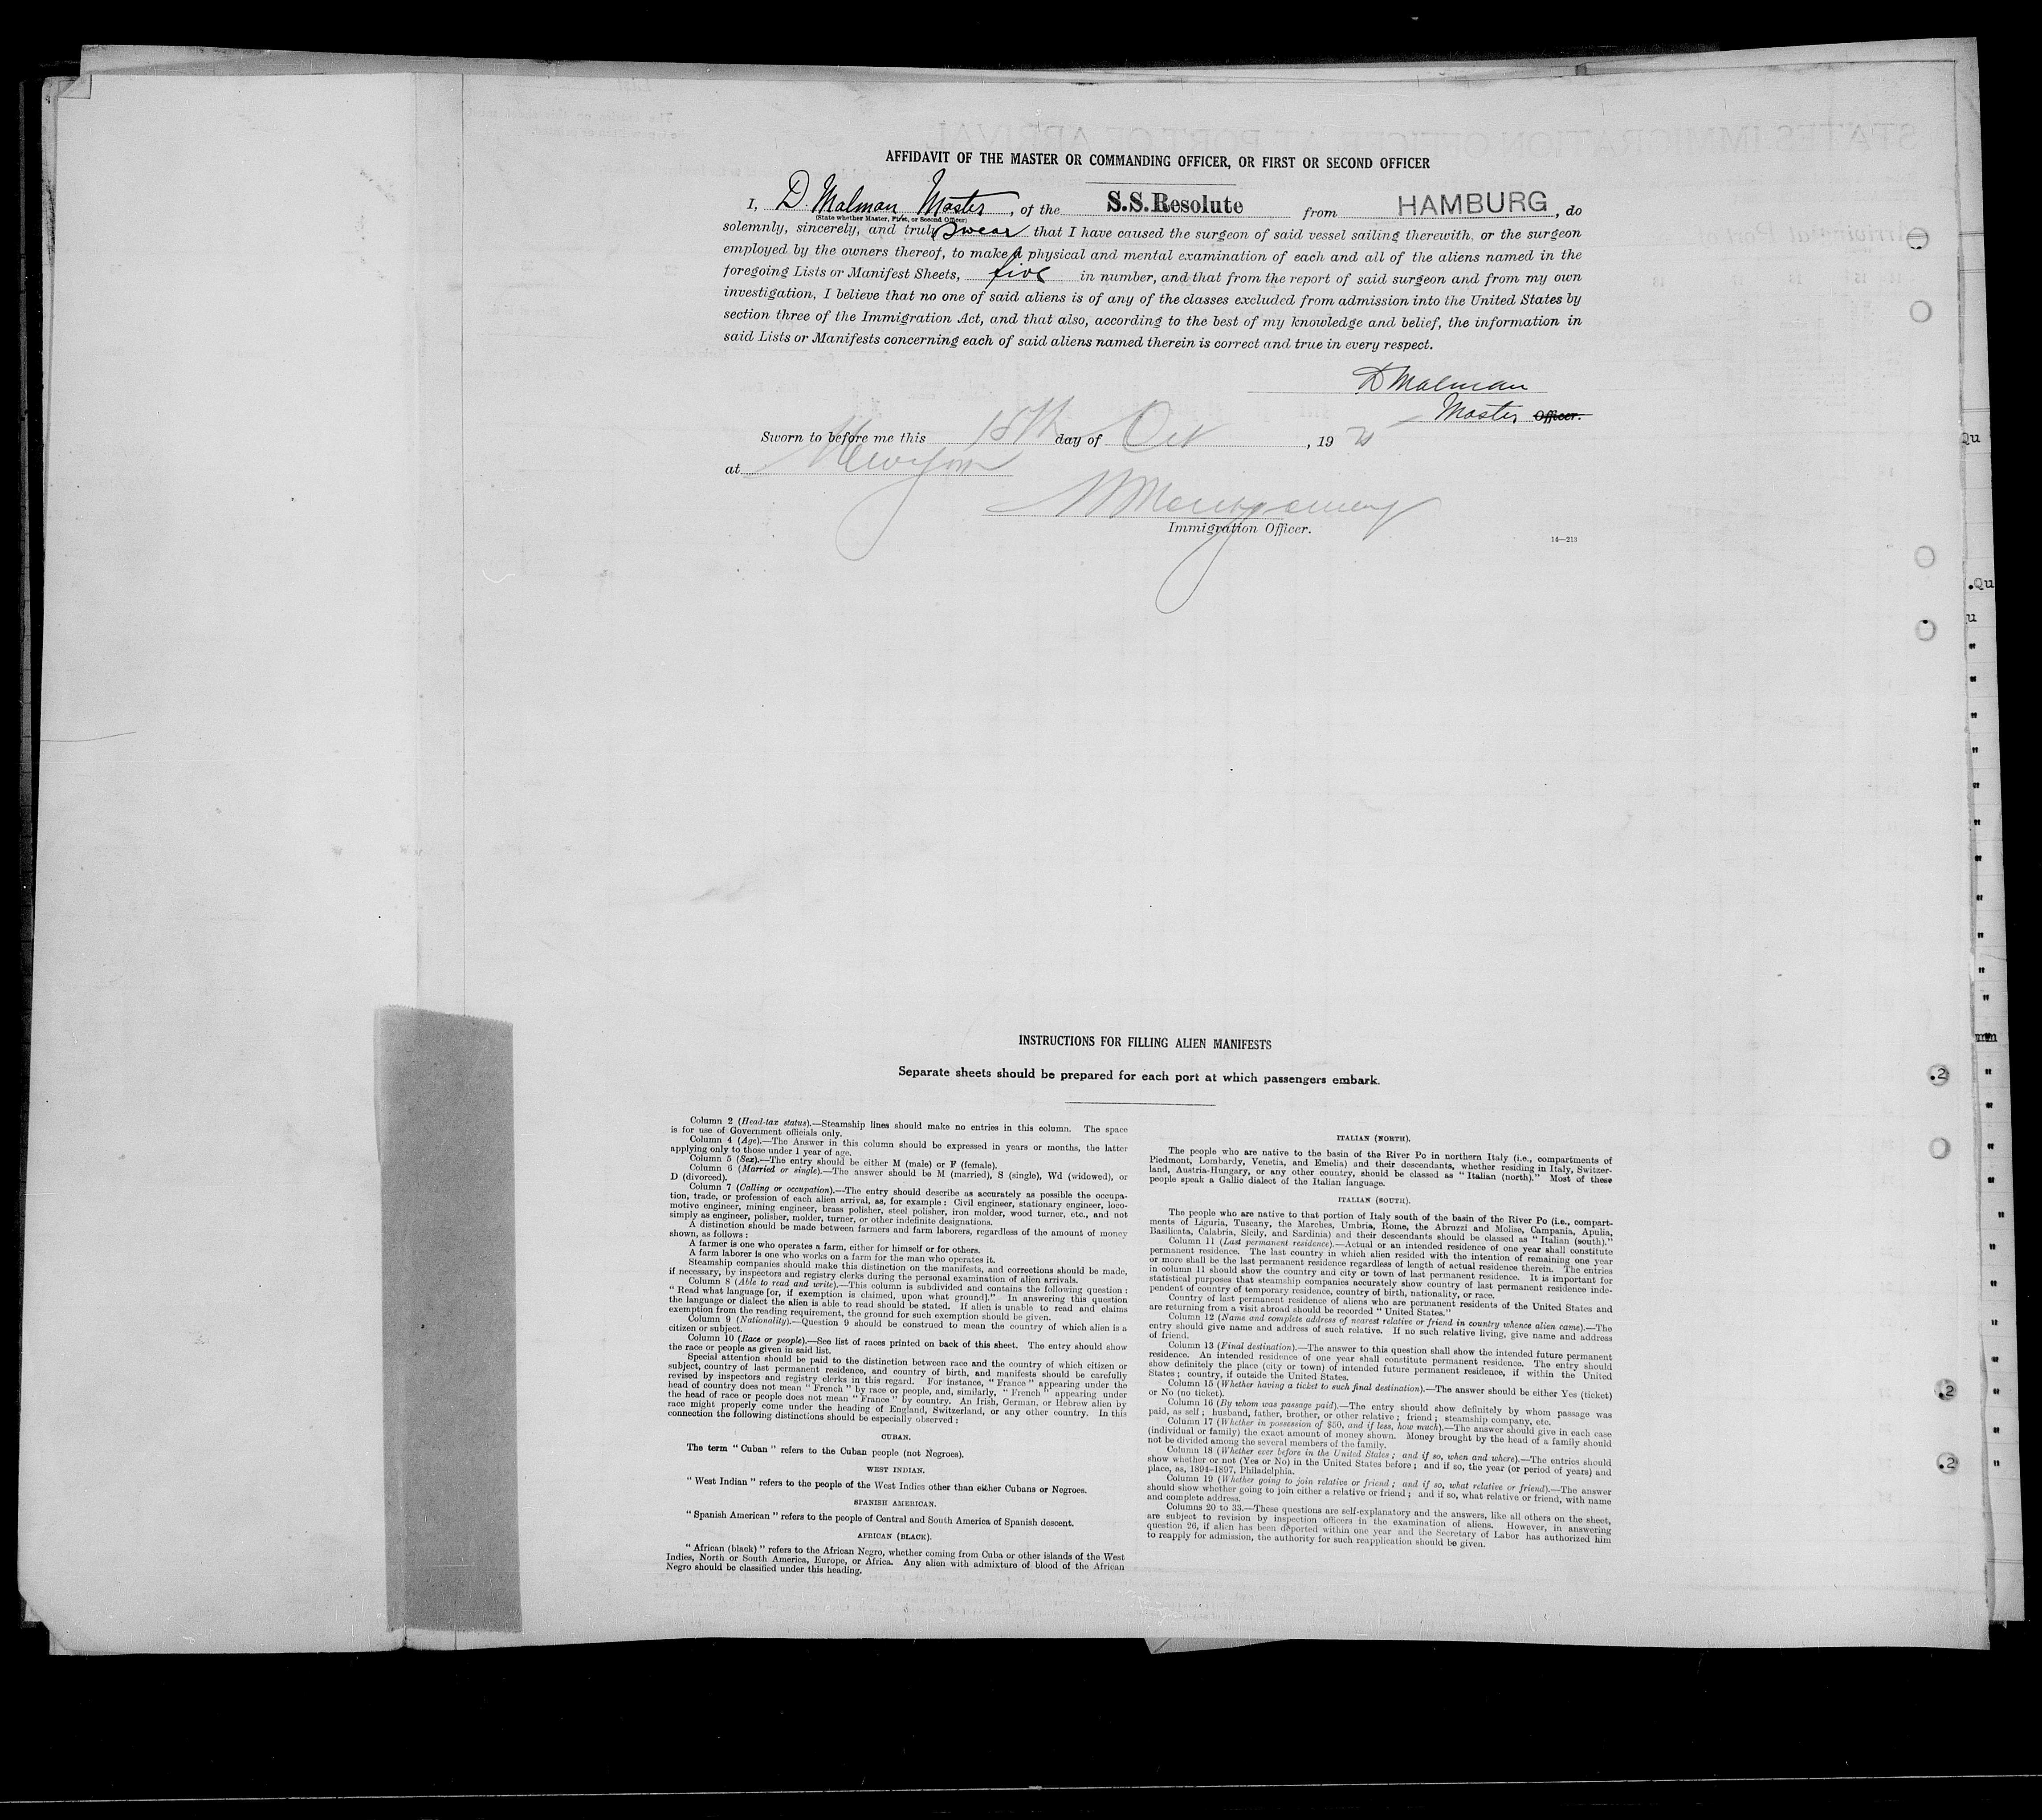 AFFIDAVIT OF THE MASTER OR COMMANDING OFFICER, OR FIRST OR SECOND OFFICER
I, D. Malman Master, of the S.S. Resolute from HAMBURG, do
(State whether Master, First, or Second Officer)
solemnly, sincerely, and truly swear that I have caused the surgeon of said vessel sailing therewith, or the surgeon
employed by the owners thereof, to make a physical and mental examination of each and all of the aliens named in the
foregoing Lists or Manifest Sheets, five in number, and that from the report of said surgeon and from my own
investigation, I believe that no one of said aliens is of any of the classes excluded from admission into the United States by
section three of the Immigration Act, and that also, according to the best of my knowledge and belief, the information in
said Lists or Manifests concerning each of said aliens named therein is correct and true in every respect.
D Malman
Master Officer.
Sworn to before me this 18th day of Oct, 19
at New York
Montgomery
Immigration Officer.
14—213
INSTRUCTIONS FOR FILLING ALIEN MANIFESTS
Separate sheets should be prepared for each port at which passengers embark.
Column 2 (Head-tax status).—Steamship lines should make no entries in this column. The space
is for use of Government officials only.
Column 4 (Age).—The Answer in this column should be expressed in years or months, the latter
applying only to those under 1 year of age.
Column 5 (Sex).—The entry should be either M (male) or F (female).
Column 6 (Married or single).—The answer should be M (married), S (single), Wd (widowed), or
D (divorced).
Column 7 (Calling or occupation).—The entry should describe as accurately as possible the occupa-
tion, trade, or profession of each alien arrival, as, for example: Civil engineer, stationary engineer, loco-
motive engineer, mining engineer, brass polisher, steel polisher, iron molder, wood turner, etc., and not
simply as engineer, polisher, molder, turner, or other indefinite designations.
A distinction should be made between farmers and farm laborers, regardless of the amount of money
shown, as follows:
A farmer is one who operates a farm, either for himself or for others.
A farm laborer is one who works on a farm for the man who operates it.
Steamship companies should make this distinction on the manifests, and corrections should be made,
if necessary, by inspectors and registry clerks during the personal examination of alien arrivals.
Column 8 (Able to read and write).—This column is subdivided and contains the following question:
"Read what language [or, if exemption is claimed, upon what ground]." In answering this question
the language or dialect the alien is able to read should be stated. If alien is unable to read and claims
exemption from the reading requirement, the ground for such exemption should be given.
Column 9 (Nationality).—Question 9 should be construed to mean the country of which alien is a
citizen or subject.
Column 10 (Race or people).—See list of races printed on back of this sheet. The entry should show
the race or people as given in said list.
Special attention should be paid to the distinction between race and the country of which citizen or
subject, country of last permanent residence, and country of birth, and manifests should be carefully
revised by inspectors and registry clerks in this regard. For instance, "France" appearing under the
head of country does not mean "French" by race or people, and, similarly, "French" appearing under
the head of race or people does not mean "France" by country. An Irish, German, or Hebrew alien by
race might properly come under the heading of England, Switzerland, or any other country. In this
connection the following distinctions should be especially observed:
CUBAN.
The term "Cuban" refers to the Cuban people (not Negroes).
WEST INDIAN.
"West Indian" refers to the people of the West Indies other than either Cubans or Negroes.
SPANISH AMERICAN.
"Spanish American" refers to the people of Central and South America of Spanish descent.
AFRICAN (BLACK).
"African (black)" refers to the African Negro, whether coming from Cuba or other islands of the West
Indies, North or South America, Europe, or Africa. Any alien with admixture of blood of the African
Negro should be classified under this heading.
ITALIAN (NORTH).
The people who are native to the basin of the River Po in northern Italy (i.e., compartments of
Piedmont, Lombardy, Venetia, and Emelia) and their descendants, whether residing in Italy, Switzer-
land, Austria-Hungary, or any other country, should be classed as "Italian (north)." Most of these
people speak a Gallic dialect of the Italian language.
ITALIAN (SOUTH).
The people who are native to that portion of Italy south of the basin of the River Po (i.e., compart-
ments of Liguria, Tuscany, the Marches, Umbria, Rome, the Abruzzi and Molise, Campania, Apulia,
Basilicata, Calabria, Sicily, and Sardinia) and their descendants should be classed as "Italian (south)."
Column 11 (Last permanent residence).—Actual or an intended residence of one year shall constitute
permanent residence. The last country in which alien resided with the intention of remaining one year
or more shall be the last permanent residence regardless of length of actual residence therein. The entries
in column 11 should show the country and city or town of last permanent residence. It is important for
statistical purposes that steamship companies accurately show country of last permanent residence inde-
pendent of country of temporary residence, country of birth, nationality, or race.
Country of last permanent residence of aliens who are permanent residents of the United States and
are returning from a visit abroad should be recorded "United States."
Column 12 (Name and complete address of nearest relative or friend in country whence alien came).—The
entry should give name and address of such relative. If no such relative living, give name and address
of friend.
Column 13 (Final destination).—The answer to this question shall show the intended future permanent
residence. An intended residence of one year shall constitute permanent residence. The entry should
show definitely the place (city or town) of intended future permanent residence, if within the United
States; country, if outside the United States.
Column 15 (Whether having a ticket to such final destination).—The answer should be either Yes (ticket)
or No (no ticket).
Column 16 (By whom was passage paid).—The entry should show definitely by whom passage was
paid, as self; husband, father, brother, or other relative; friend; steamship company, etc.
Column 17 (Whether in possession of $50, and if less, how much).—The answer should give in each case
(individual or family) the exact amount of money shown. Money brought by the head of a family should
not be divided among the several members of the family.
Column 18 (Whether ever before in the United States; and if so, when and where).—The entries should
show whether or not (Yes or No) in the United States before; and if so, the year (or period of years) and
place, as, 1894-1897, Philadelphia.
Column 19 (Whether going to join relative or friend; and if so, what relative or friend).—The answer
should show whether going to join either a relative or friend; and if so, what relative or friend, with name
and complete address.
Columns 20 to 33.—These questions are self-explanatory and the answers, like all others on the sheet,
are subject to revision by inspection officers in the examination of aliens. However, in answering
question 26, if alien has been deported within one year and the Secretary of Labor has authorized him
to reapply for admission, the authority for such reapplication should be given.